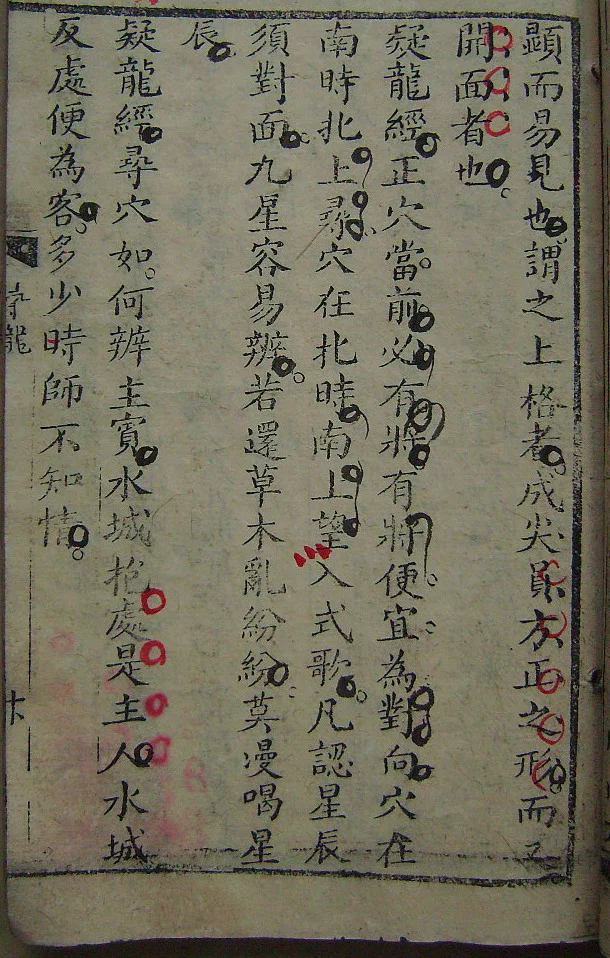 顯而易見也謂之上格者成尖員方正之形而又
開面者也
疑龍經正穴當前必有將有將便宜為對向穴在
南時北上尋穴在北時南上望入式歌凡認星辰
須對面九星容易辨若還草木亂紛紛莫漫喝星
辰
疑龍經尋穴如何辨主賓水城抱處是主人水城
反處便為客多少時師不知情
尋龍